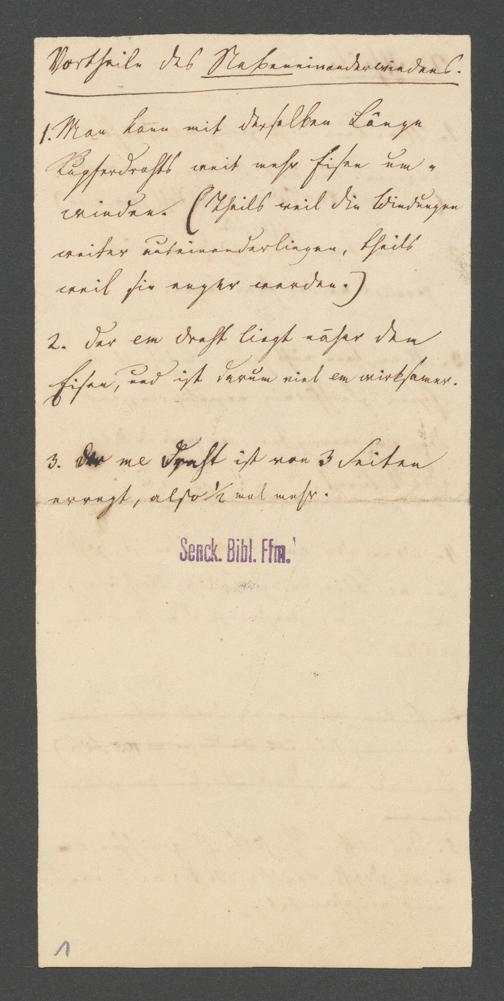 Vortheile des Nebeneinanderwindens.
1. Man kann mit derselben Länge
Kupferdrahts weit mehr Eisen um-
winden. (Theils weil die Windungen
weiter auseinanderliegen, theils
weil sie enger werden.)
2. der em draht liegt näher dem
Eisen, und ist darum viel em wirksamer.
3. Der me Draht ist von 3 Seiten
erregt, also ½ mal mehr.
Senck. Bibl. Ffm.
1